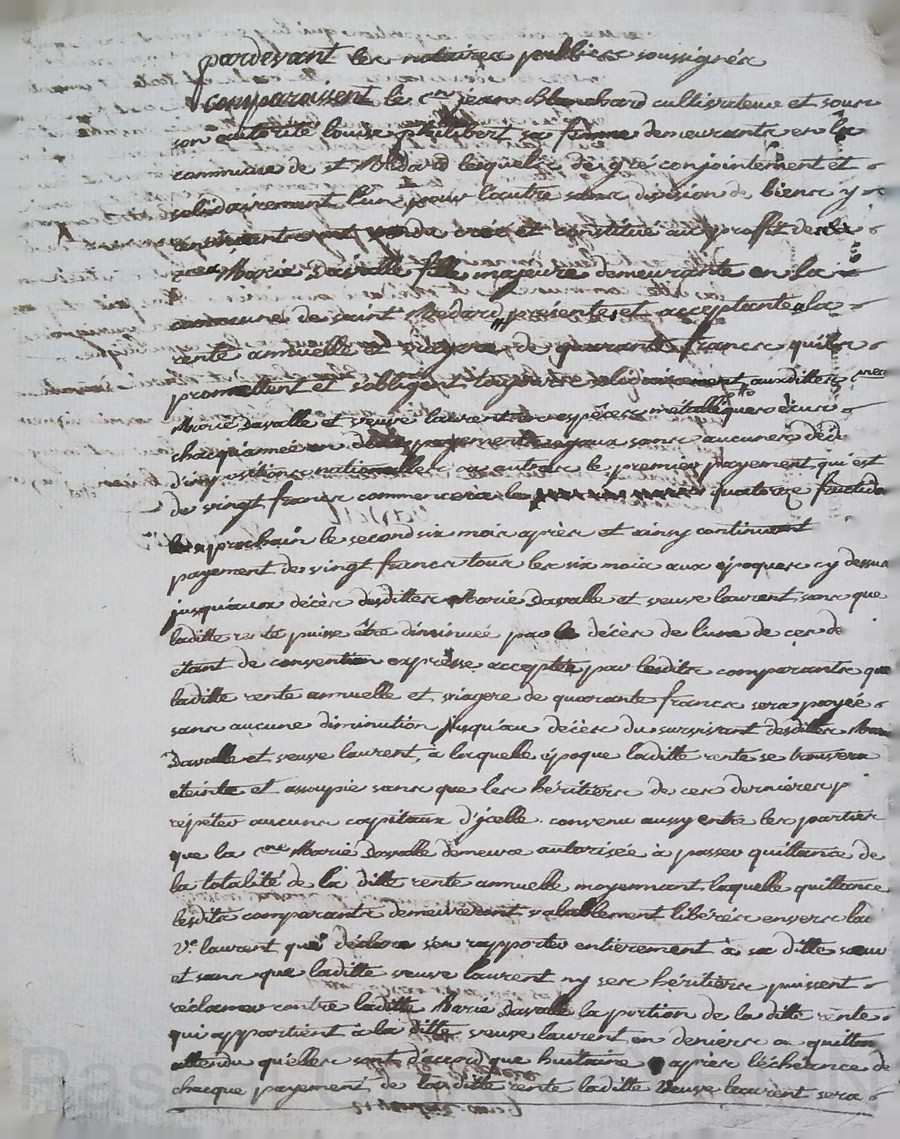 pardevant les notaires publics soussignés
Comparoissent le c.en jean Blanchard cultivateur et sous
son autorité louise philibert sa femme demeurants en la
commune de st Medard lesquels de gré conjointement et
solidairement l'un pour l'autre sans division de biens y
ont vendu créé et constitué au proffit de
Marie Davalle fille majeure demeurante en la
commune de saint Medard, présente et acceptante la
rente annuelle et viagere de quarante francs qu'ils
promettent et s'obligent toujours solidairement auxdittes c.nes
Marie Davalle et veuve laurent en espèces métalliques écus
chaque année en deux payements egaux sans aucunes déd
d'impositions nationalles ou autres le premier payement qui est
de vingt francs commencera le quatorze fructidor
prochain le second six mois après et ainsy continuent
payement de vingt francs tous les six mois aux époques cy dessus
jusqu'aux décès desdittes Marie Davalle et veuve laurent sans que
laditte rente puisse être diminuée par le décès de l'une de ces de
étant de convention expresse acceptée par lesdits comparants que
laditte rente annuelle et viagere de quarante francs sera payée
sans aucune diminution jusqu'au décès du survivant desdittes Marie
Davalle et veuve laurent, à laquelle époque laditte rente se trouvera
éteinte et assoupie sans que les héritiers de ces dernières p
répéter aucuns capitaux d'jcelle. convenu aussy entre les parties
que la c.ne Marie Davalle demeure autorisée à passer quittance de
la totalité de la ditte rente annuelle moyennant laquelle quittance
lesdits comparants demeureront valablement libérés envers la
V.e laurent qui déclare s'en rapporter entièrement à sa ditte sœur
et sans que laditte veuve laurent ny ses héritiers puissent
réclamer contre laditte Marie Davalle la portion de la ditte rente
qui appartient à la ditte veuve laurent en deniers ou quittan
attendu qu'elles sont d'accord que huitaine après l'échéance de
chaque payement de la ditte rente laditte Veuve laurent sera